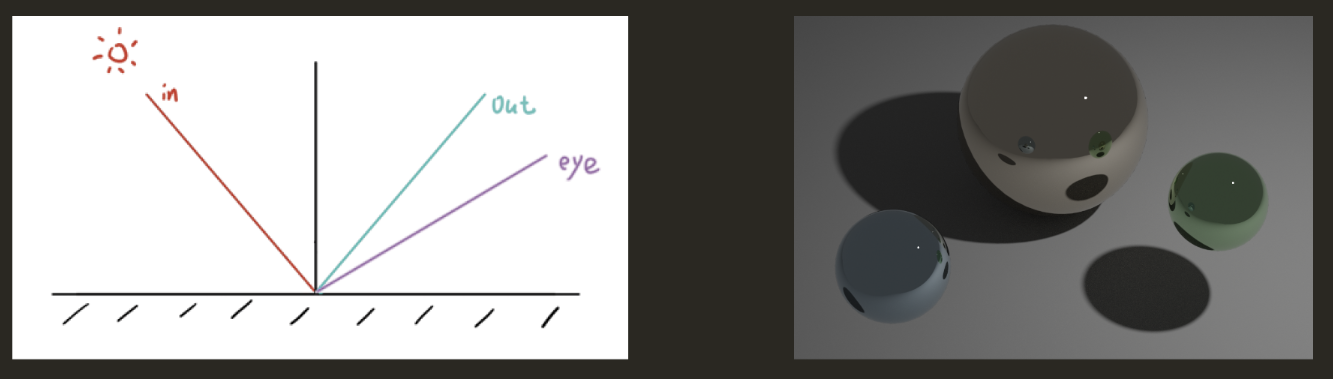 in
Out
eye